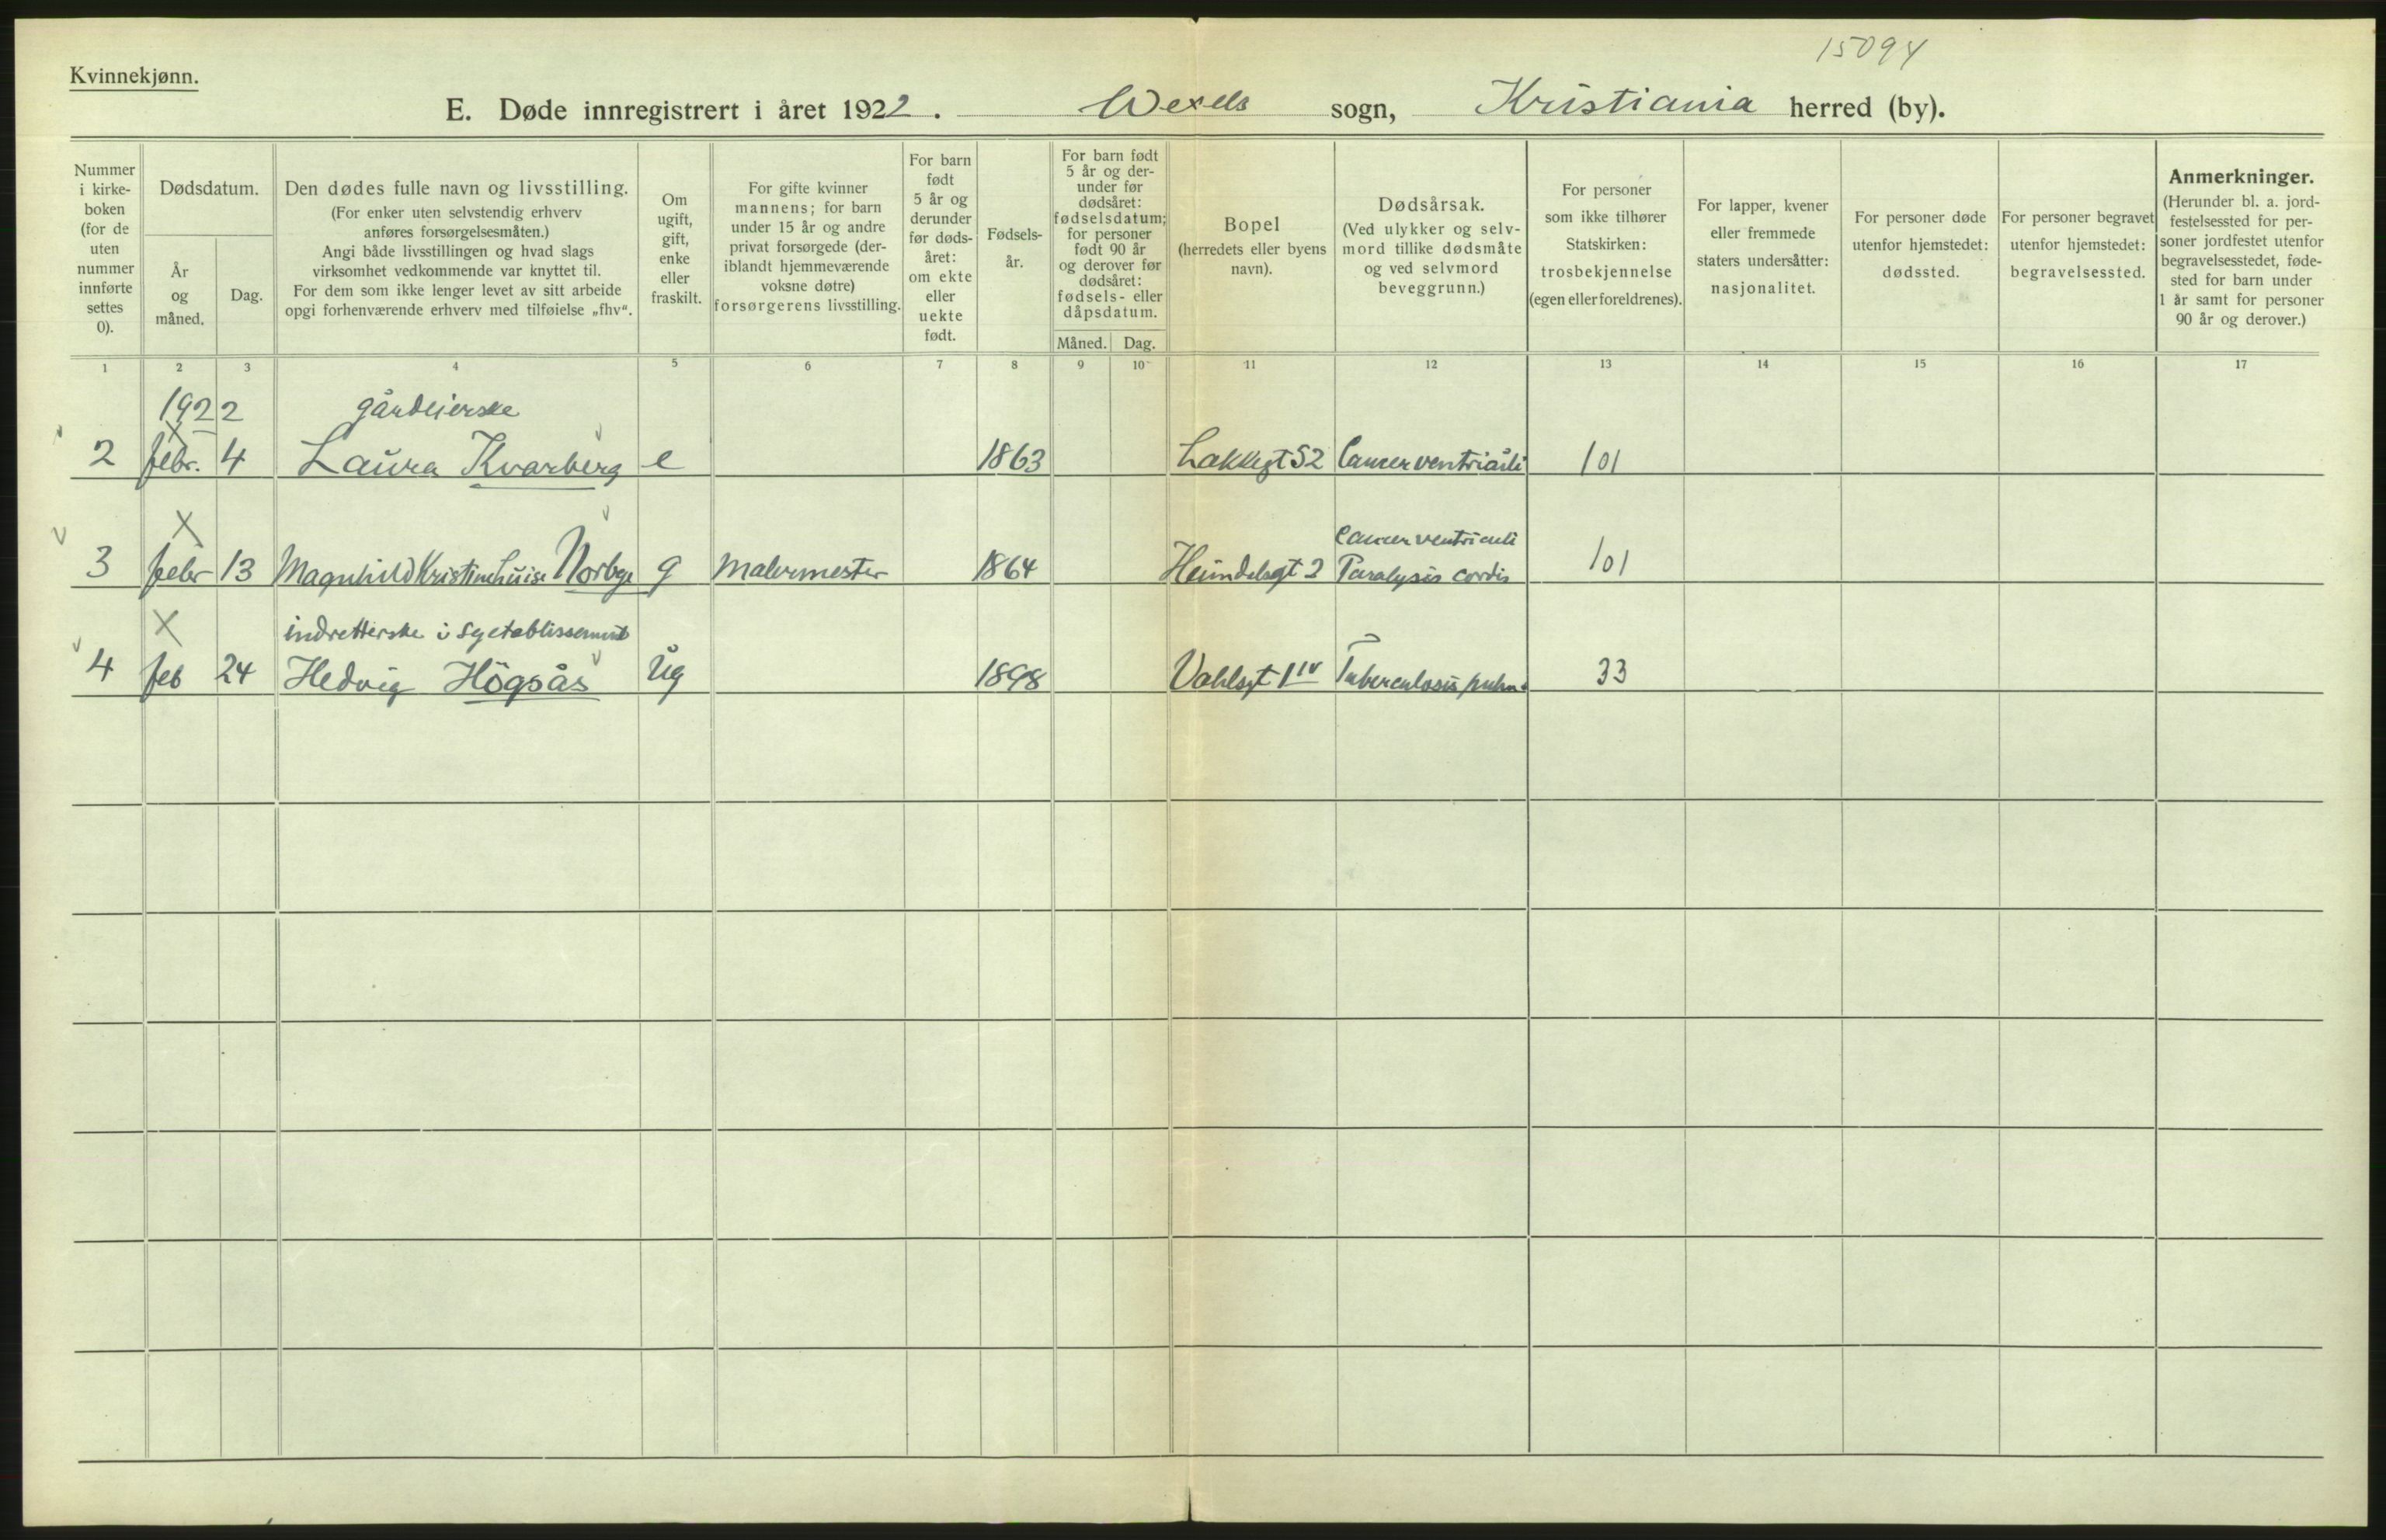 15094
Kvinnekjønn.
E. Døde innregistrert i året 1922. Wexels sogn, Kristiania herred (by).
Nummer
i kirke-
boken
(for de
uten
nummer
innførte
settes
0).
Dødsdatum.
År
og
måned.
Dag.
Den dødes fulle navn og livsstilling.
(For enker uten selvstendig erhverv
anføres forsørgelsesmåten.)
Angi både livsstillingen og hvad slags
virksomhet vedkommende var knyttet til.
For dem som ikke lenger levet av sitt arbeide
opgi forhenværende erhverv med tilføielse „fhv“.
Om
ugift,
gift,
enke
eller
fraskilt.
For gifte kvinner
mannens; for barn
under 15 år og andre
privat forsørgede (der-
iblandt hjemmeværende
voksne døtre)
forsørgerens livsstilling.
For barn
født
5 år og
derunder
før døds-
året:
om ekte
eller
uekte
født.
Fødsels-
år.
For barn født
5 år og der-
under før
dødsåret:
fødselsdatum;
for personer
født 90 år
og derover før
dødsåret:
fødsels- eller
dåpsdatum.
Måned. Dag.
Bopel
(herredets eller byens
navn).
Dødsårsak.
(Ved ulykker og selv-
mord tillike dødsmåte
og ved selvmord
beveggrunn.)
For personer
som ikke tilhører
Statskirken:
trosbekjennelse
(egen eller foreldrenes).
For lapper, kvener
eller fremmede
staters undersåtter:
nasjonalitet.
For personer døde
utenfor hjemstedet:
dødssted.
For personer begravet
utenfor hjemstedet:
begravelsessted.
Anmerkninger.
(Herunder bl. a. jord-
festelsessted for per-
soner jordfestet utenfor
begravelsesstedet, føde-
sted for barn under
1 år samt for personer
90 år og derover.)
1 2 3 4 5 6 7 8 9 10 11 12 13 14 15 16 17
1922 gårdeierske
2 febr. 4 Laura Kvarberg e 1863 Lakkegt 52 Cancer ventriculi 101
X cancer ventriculi
3 febr 13 Magnhild Kristine Luise Norbye g Malermester 1864 Heimdalsgt 2 Paralysis cordis 101
X indretterske i syetablissement
4 feb 24 Hedvig Högsås ug 1898 Vahlsgt 1 IV Tuberculosis pulm. 33